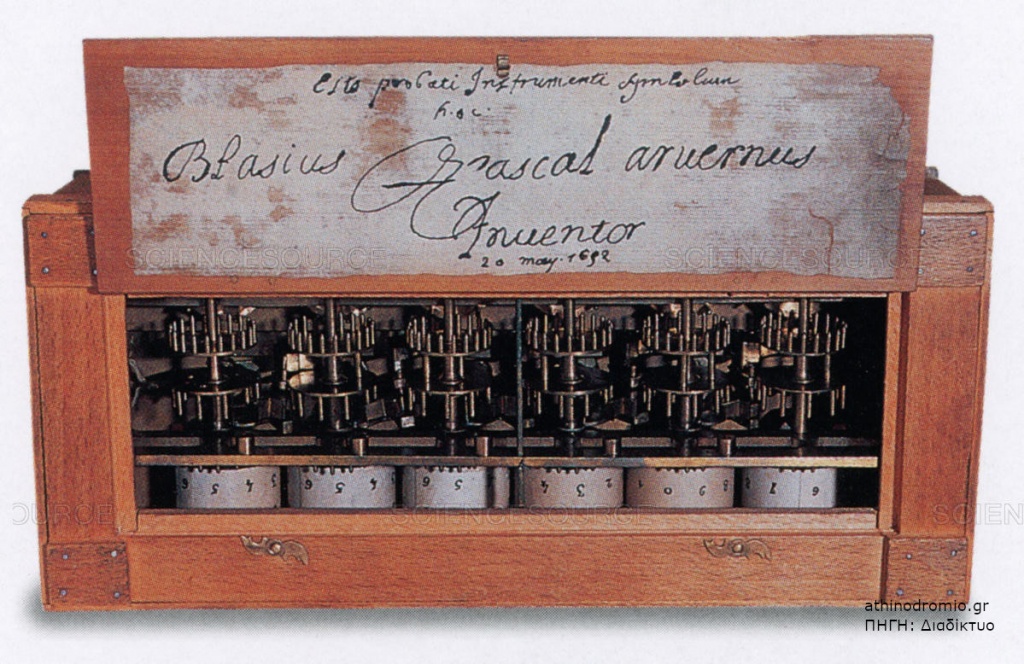 Esto probati Instrumenti symbolum
hoc
Blasius Pascal arvernus
Inventor
20 may. 1652
SCIENCESOURCE SCIENCESOURCE SCIENCESOURCE
6 5 4 6 5 4 6 5 4 3 2 1 0 9 8 7 6
OURCE SCIENCESOURCE SCIEN
athinodromio.gr
ΠΗΓΗ: Διαδίκτυο